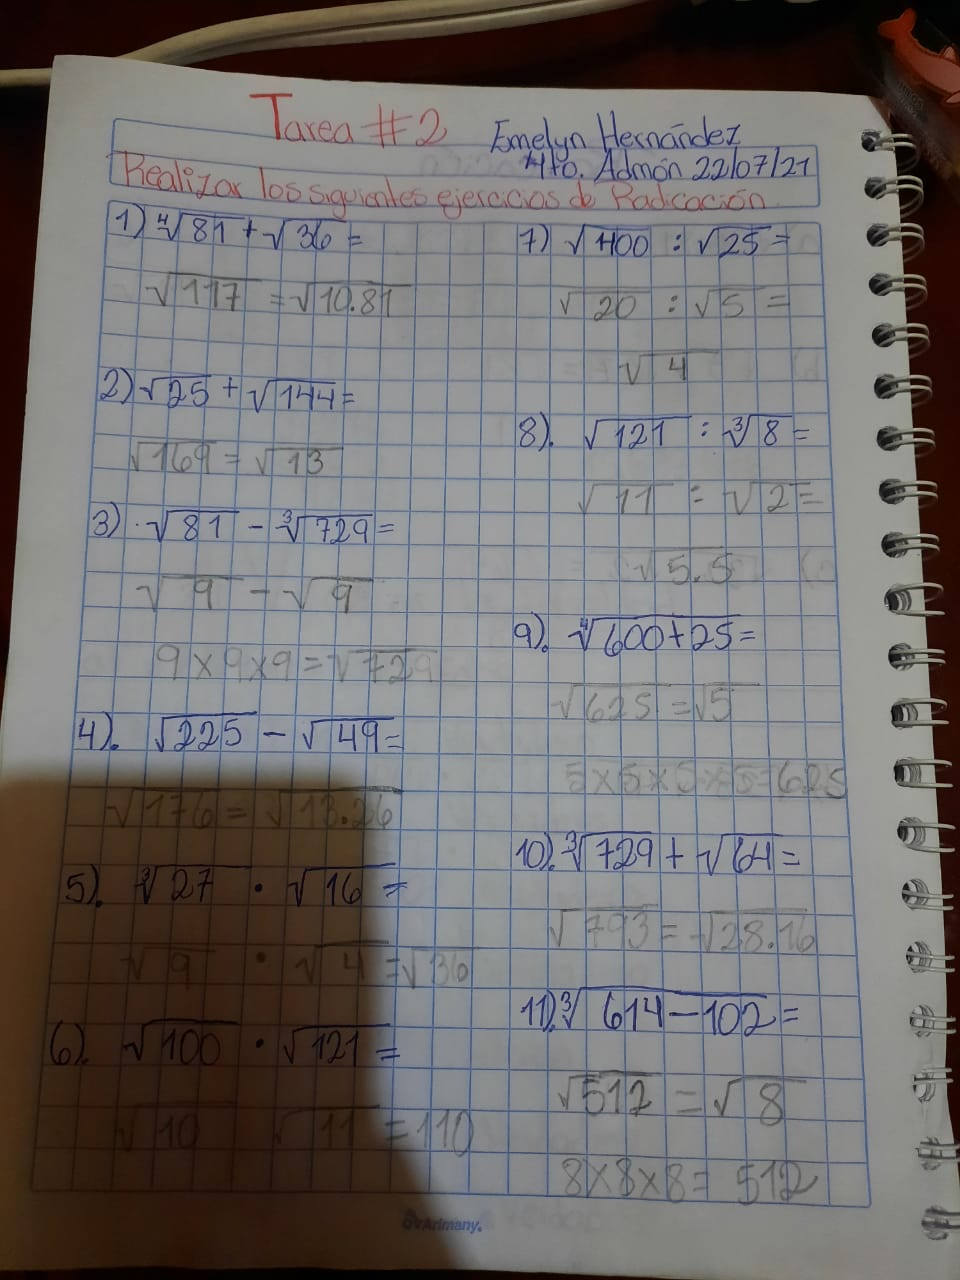 Tarea #2
Emelyn Hernández
4to. Admón 22/07/21
Realizar los siguientes ejercicios de Radicación
1) ∜81 + √36 =
√117 = √10.81
2) √25 + √144 =
√169 = √13
3) √81 - ∛729 =
√9 - √9
9 x 9 x 9 = √729
4). √225 - √49 =
√176 = √13.26
5). ∛27 · √16 =
√9 · √4 = √36
6). √100 · √121 =
√10 √11 = 110
7) √400 : √25 =
√20 : √5 =
√4
8). √121 : ∛8 =
√11 : √2 =
√5.5
9). ∜600+25 =
√625 = √5
5 x 5 x 5 x 5 = 625
10). ∛729 + √64 =
√793 = √28.16
11). ∛614-102 =
√512 = √8
8 x 8 x 8 = 512
Arimany.